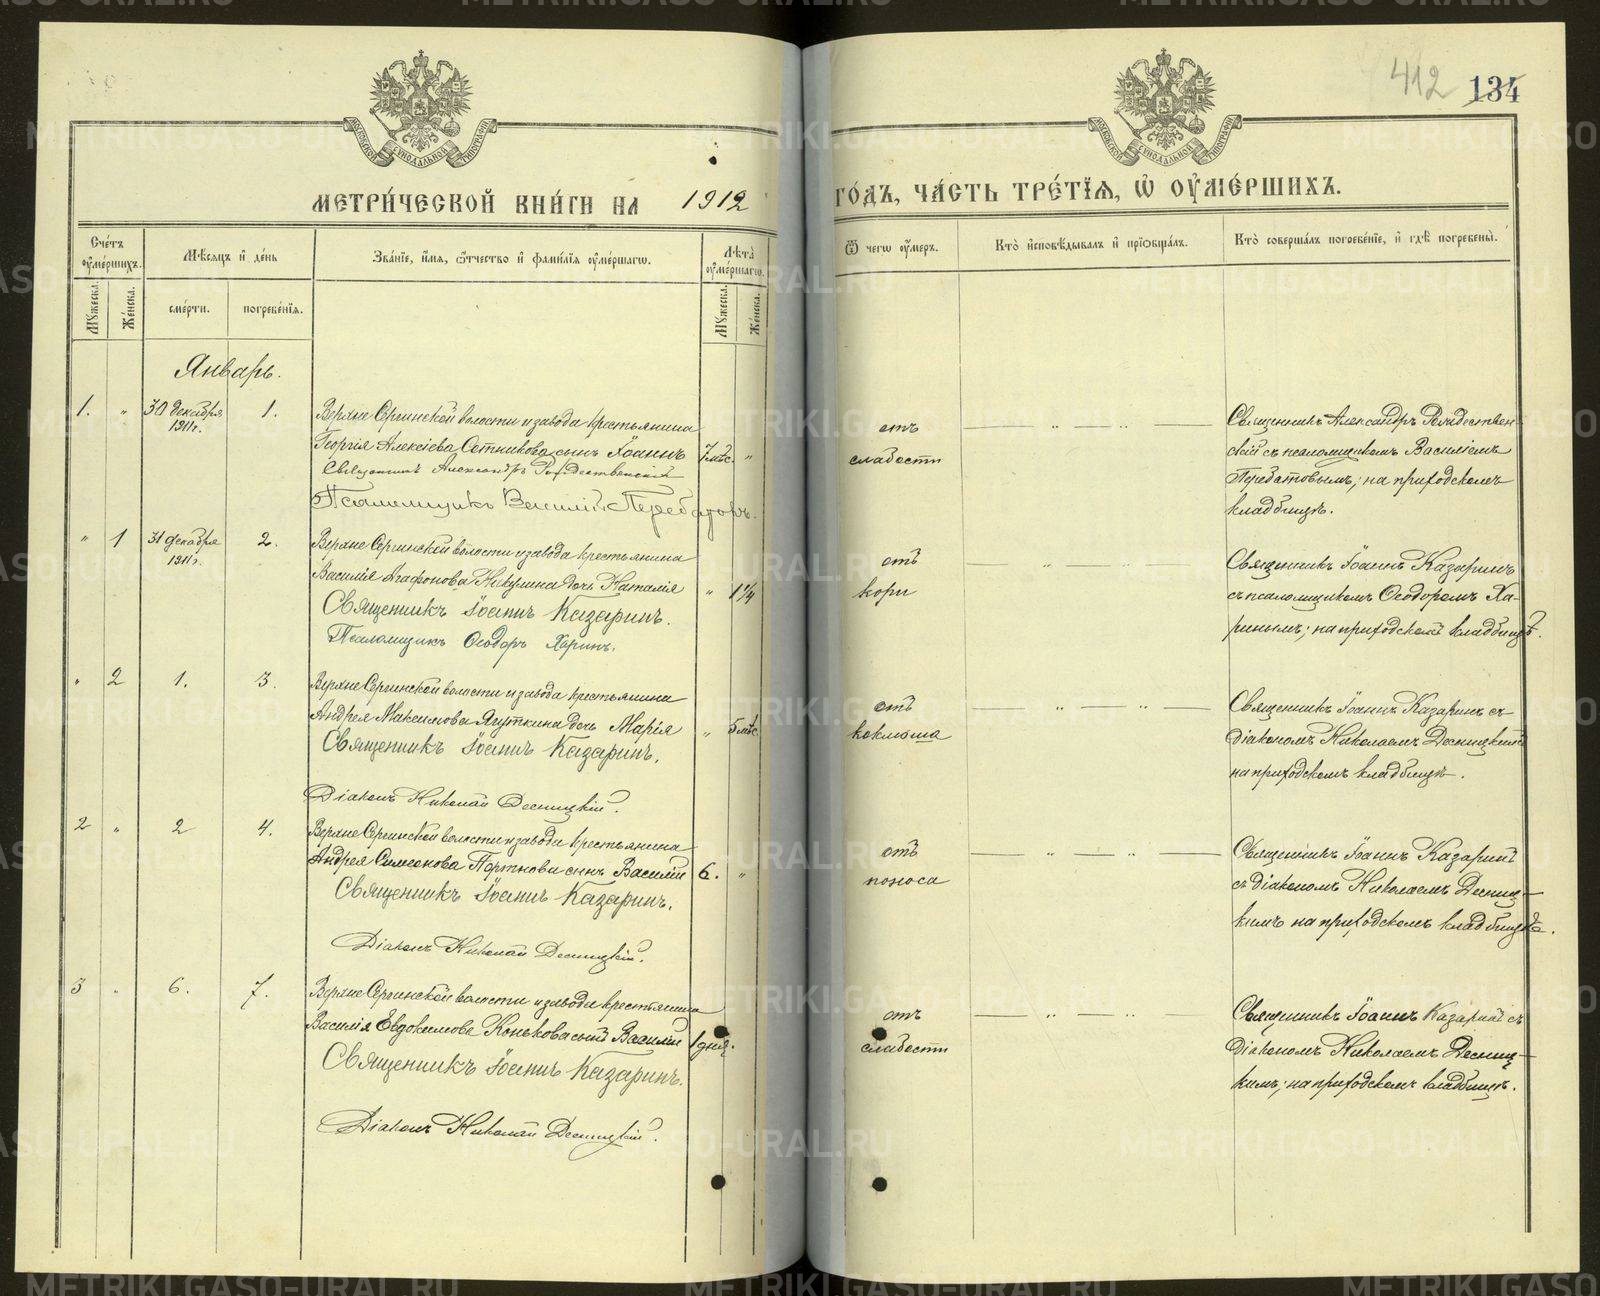 412 134
МОСКОВСКОЙ СѴНОДАЛЬНОЙ ТИПОГРАФІИ
МОСКОВСКОЙ СѴНОДАЛЬНОЙ ТИПОГРАФІИ
МЕТРИ́ЧЕСКОЙ КНИ́ГИ НА 1912 ГО́ДЪ, ЧА́СТЬ ТРЕ́ТІѦ, Ѽ ОУМЕ́РШИХЪ.
Счетъ оумершихъ.
Мѣсяцъ и день
Званіе, имя, отчество и фамилія оумершагѡ.
Лѣта оумершагѡ.
Ѿ чегѡ оумеръ.
Кто исповѣдывалъ и пріобщалъ.
Кто совершалъ погребеніе, и гдѣ погребены.
Мужеска. Женска. смерти. погребенія. Мужеска. Женска.
Январь.
1. " 30 декабря 1911 г. 1.
Верхне Сергинской волости и завода крестьянина
Георгія Алексіева Сотникова сынъ Іоаннъ 7 мѣс. "
Священникъ Александръ Рождественскій
Псаломщикъ Василій Передатовъ.
отъ
слабости
Священникъ Александръ Рождествен
скій съ псаломщикомъ Василіемъ
Передатовымъ; на приходскомъ
кладбищѣ.
" 1 31 декабря 1911 г. 2.
Верхне Сергинской волости и завода крестьянина
Василія Агафонова Никулина дочь Наталія " 1 1/4
Священникъ Іоаннъ Казаринъ.
Псаломщикъ Ѳеодоръ Харинъ.
отъ
кори
Священникъ Іоаннъ Казаринъ
съ псаломщикомъ Ѳеодоромъ Ха-
ринымъ; на приходскомъ кладбищѣ.
" 2 1. 3.
Верхне Сергинской волости и завода крестьянина
Андрея Максимова Ягуткина дочь Марія " 5 мѣс.
Священникъ Іоаннъ Казаринъ.
Діаконъ Николай Десницкій.
отъ
коклюша
Священникъ Іоаннъ Казаринъ съ
діакономъ Николаемъ Десницкимъ
на приходскомъ кладбищѣ.
2 " 2 4.
Верхне Сергинской волости и завода крестьянина
Андрея Симеонова Портнова сынъ Василій 6. "
Священникъ Іоаннъ Казаринъ.
Діаконъ Николай Десницкій.
отъ
поноса
Священникъ Іоаннъ Казаринъ
съ діакономъ Николаемъ Десниц-
кимъ на приходскомъ кладбищѣ.
3 " 6. 7.
Верхне Сергинской волости и завода крестьянина
Василія Евдокимова Конькова сынъ Василій 1 дня.
Священникъ Іоаннъ Казаринъ.
Діаконъ Николай Десницкій.
отъ
слабости
Священникъ Іоаннъ Казаринъ съ
діакономъ Николаемъ Десниц-
кимъ; на приходскомъ кладбищѣ.
METRIKI.GASO-URAL.RU